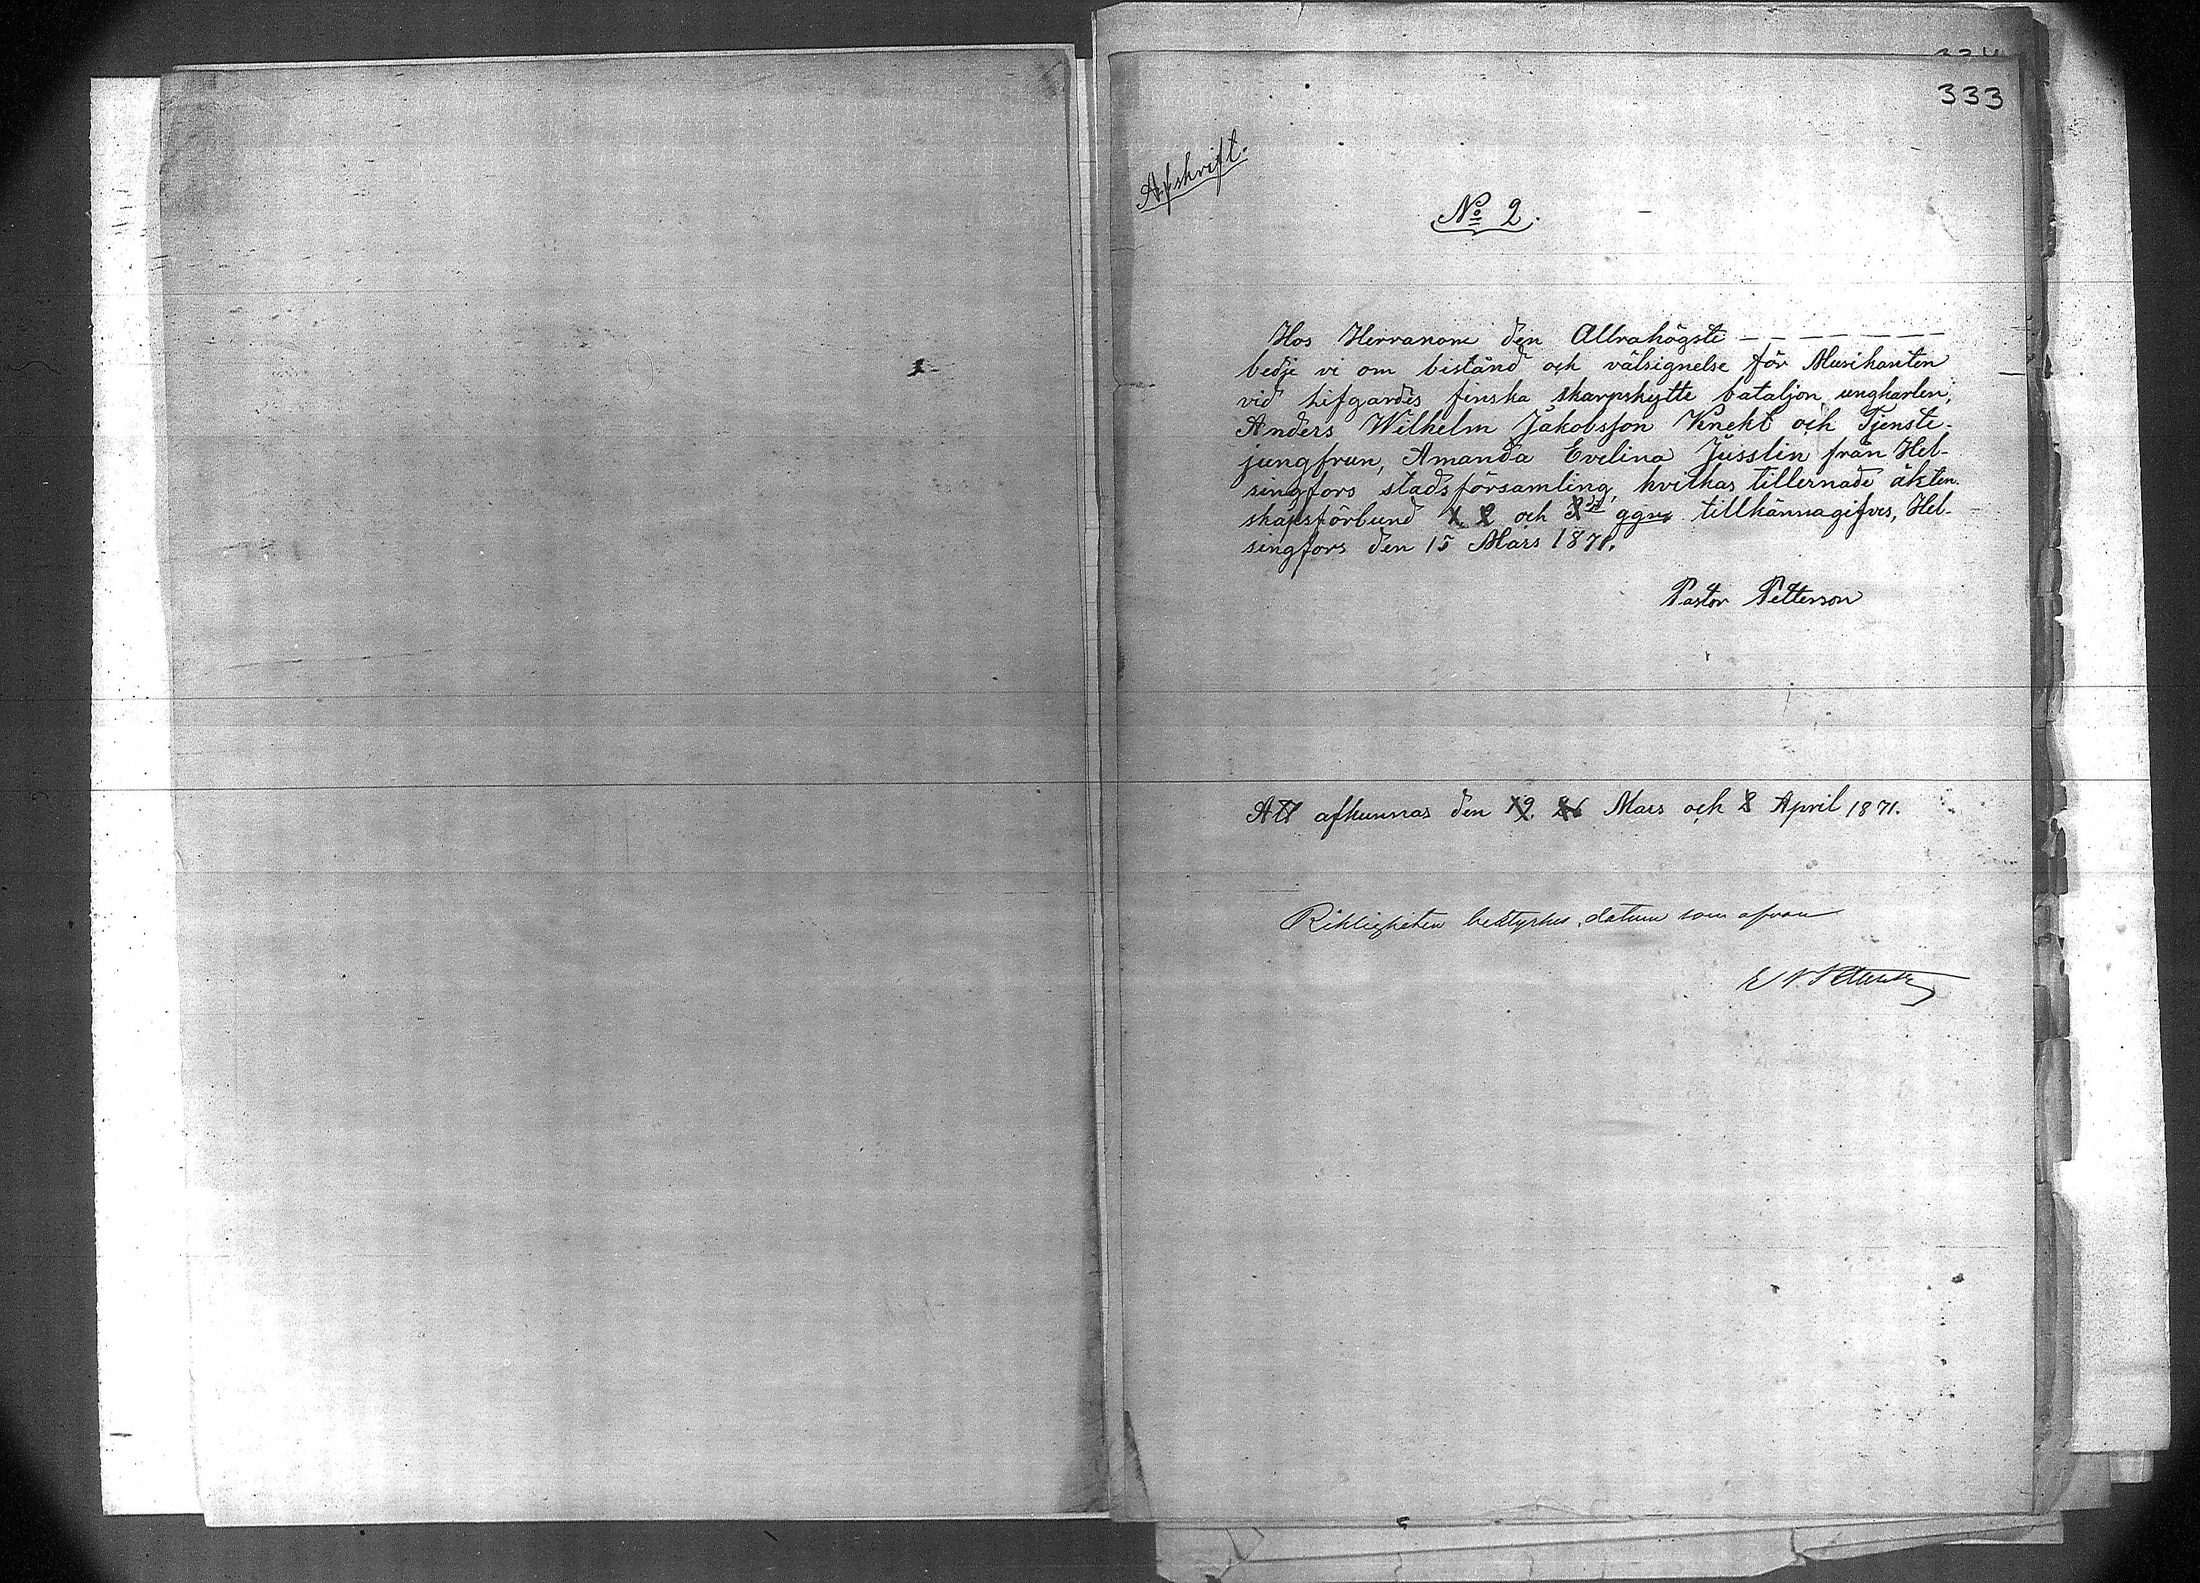 333
Afskrift.
No 2.
Hos Herranom den Allrahögste
bedje vi om bistånd och välsignelse för Musikanten
vid Lifgardes finska skarpskytte bataljon, ungkarlen,
Anders Wilhelm Jakobsson Knekt och Tjenste-
jungfrun, Amanda Evelina Jusslin från Hel-
singfors stadsförsamling, hvilkas tillernade äkten-
skapsförbund 1, 2 och 3dje ggn, tillkännagifves, Hel-
singfors den 15 Mars 1871.
Pastor Petterson
Att afkunnas den 19, 26 Mars och 2 April 1871.
Riktigheten bestyrkes, datum som ofvan